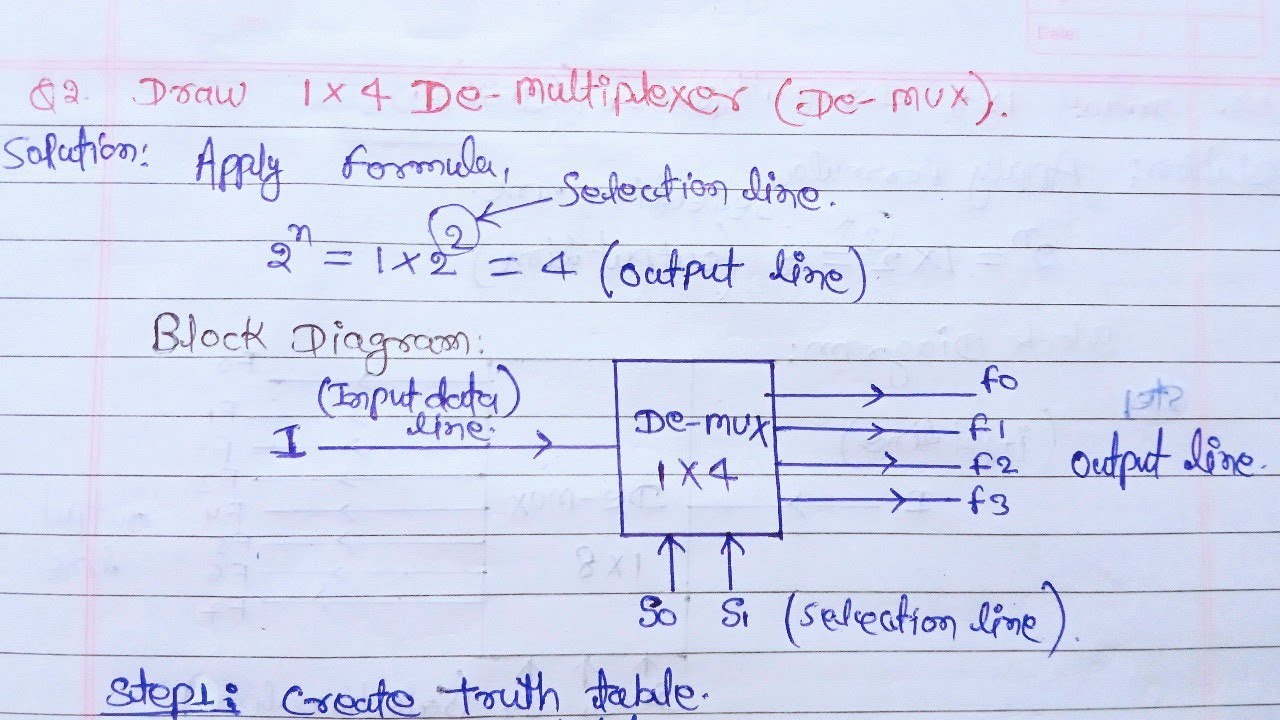 Q2. Draw 1×4 De-multiplexer (De-mux).
Solution: Apply formula, Selection line.
2ⁿ = 1×2² = 4 (output line)
Block Diagram:
(Input data line.
I
De-mux
1×4
f0
f1
f2
f3
output line.
S0 S1 (selection line).
Step1: Create truth table.